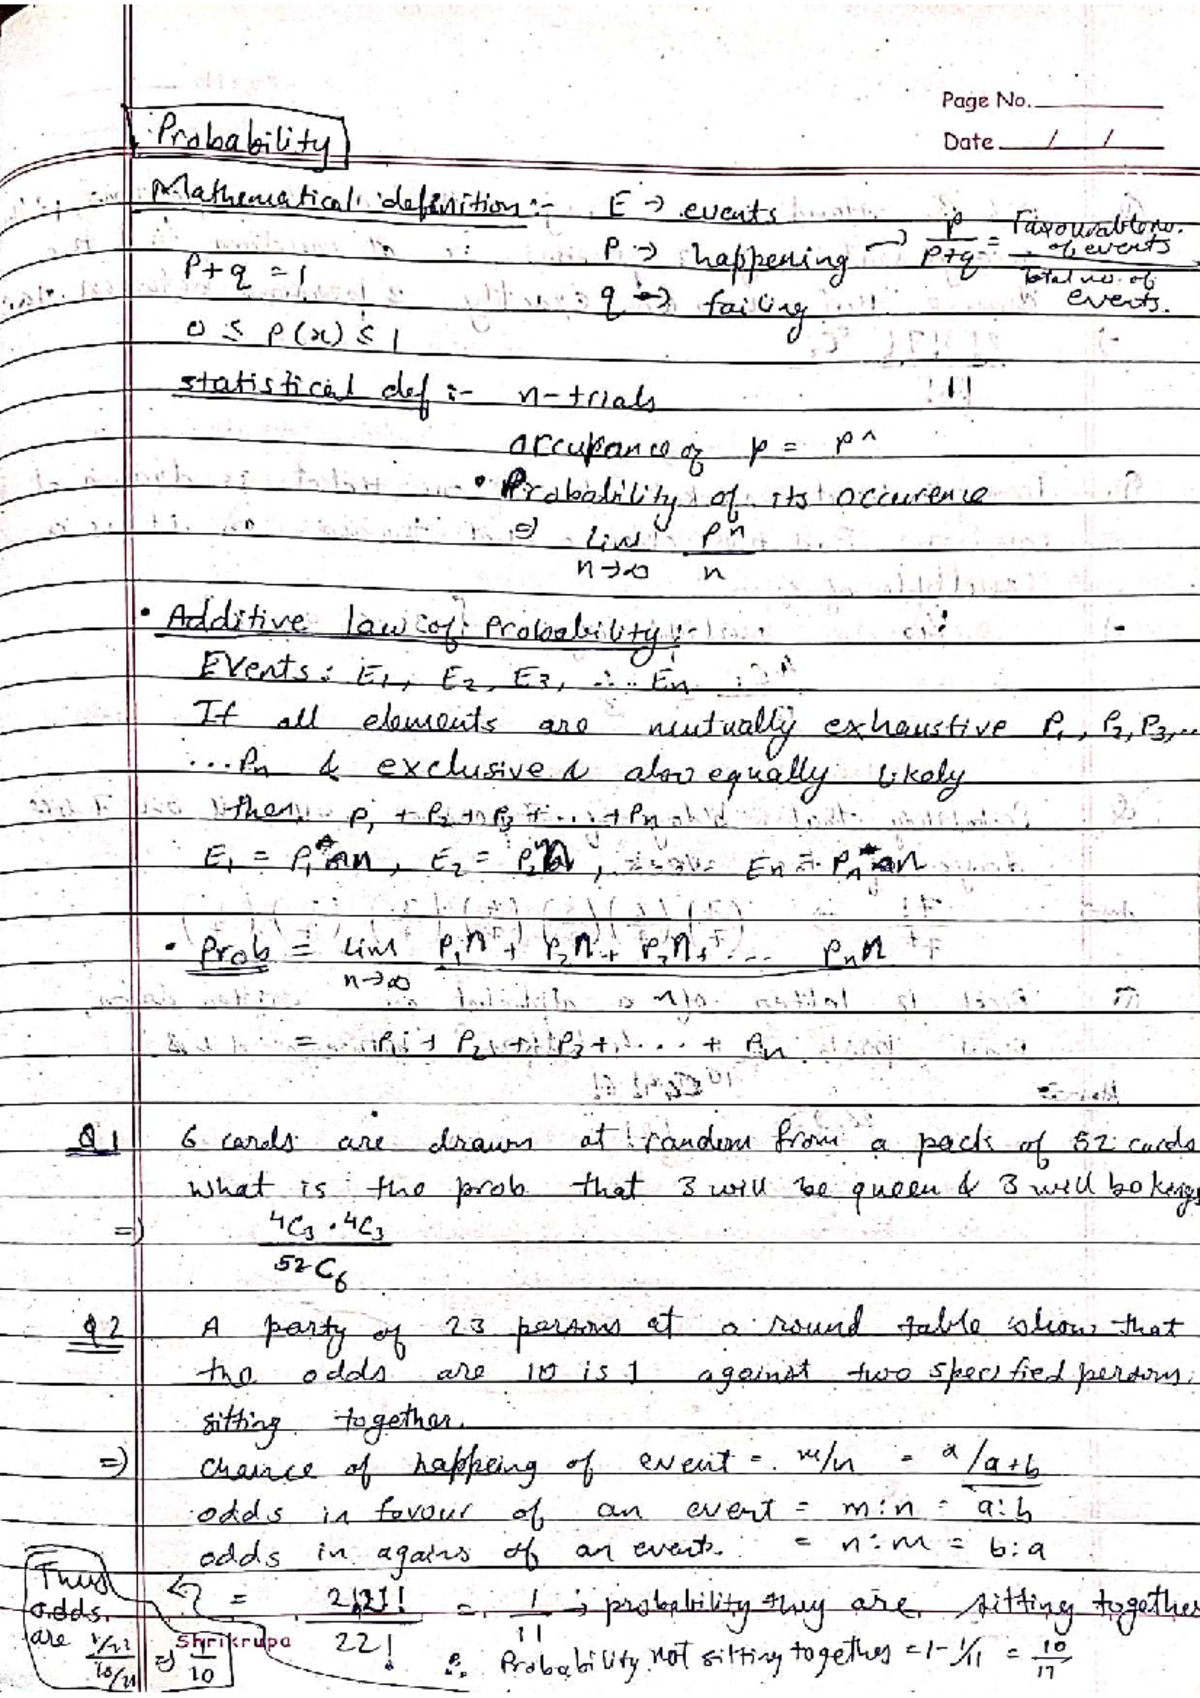 Page No.
Date / /
Probability
Mathematical definition :- E → events
P → happening → p/p+q = Favourable no. of events / Total no. of events.
P+q = 1
q → failing
0 ≤ P(x) ≤ 1
statistical def :- n-trials
occurance of p = pn
• Probability of its occurence
⇒ lim n→∞ pn/n
• Additive law of Probability :-
Events : E1, E2, E3, ... En
If all elements are mutually exhaustive P1, P2, P3, ...
...Pn & exclusive & also equally likely
then, P1 + P2 + P3 + ... + Pn
E1 = P1n, E2 = P2n, En = Pnn
• Prob = lim n→∞ p1n + p2n + p3n + ... pnn
= P1 + P2 + P3 + ... + Pn
Q1 6 cards are drawn at random from a pack of 52 cards
what is the prob that 3 will be queen & 3 will be kings
⇒ 4C3 . 4C3 / 52C6
Q2 A party of 23 persons at a round table show that
the odds are 10 is 1 against two specified persons
sitting together.
⇒ chance of happeing of event = m/n = a/a+b
odds in favour of an event = m:n = a:b
odds in agains of an event. = n:m = b:a
= 2!21! / 22! = 1/11 → probability they are sitting together
∴ Probability not sitting together = 1 - 1/11 = 10/11
Thus
odds
are ⇒ 1/10
Shrikrupa